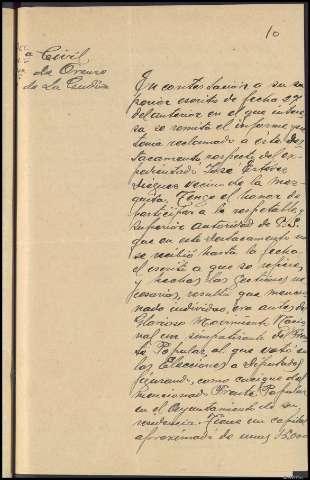 10
Civil
de Orense
de La Gudiña
En contestación a su su
perior escrito de fecha 27
del anterior en el que intere
sa se remita el informe que
tenia reclamado a este Des
tacamento respecto del ex
pedientado José Estévez
Dieguez vecino de la Mez
quita. Tengo el honor de
participar a la respetable y
superior autoridad de V.S.
que en este destacamento no
se recibió hasta la fecha
el escrito a que se refiere,
y hechas las gestiones ne
cesarias, resulta que mencio
nado individuo, era antes del
Glorioso Movimiento Nacio
nal un simpatizante del Fren
te Popular, al que votó en
las Elecciones a Diputados
figurando, como cacique del
mencionado Frente Popular
en el Ayuntamiento de su
residencia. Tiene un capital
aproximado de unas